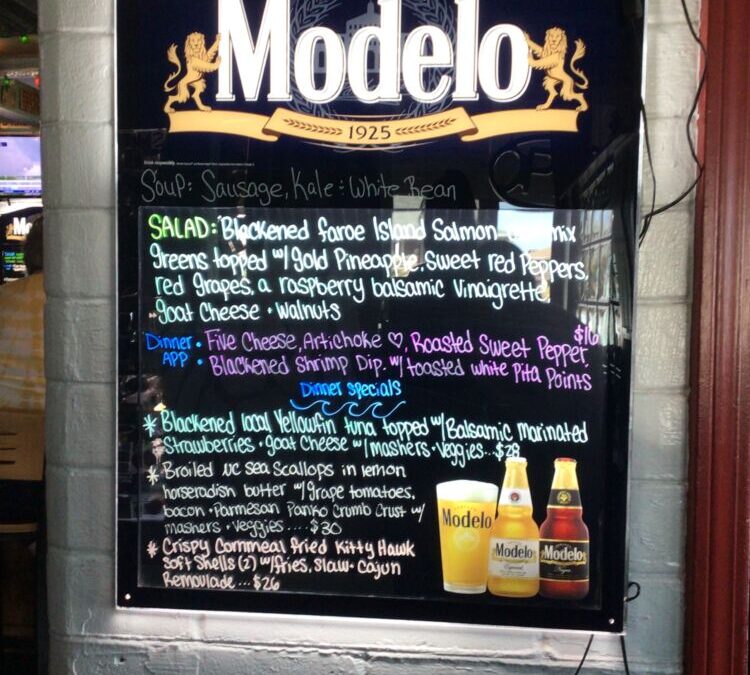 Modelo
1925
Soup: Sausage, Kale : White Bean
SALAD: Blackened faroe Island Salmon mix
greens topped w/ gold Pineapple, Sweet red Peppers,
red grapes, a raspberry balsamic vinaigrette,
goat Cheese · walnuts
$16
Dinner · Five Cheese, Artichoke ♡, Roasted Sweet Pepper,
APP · Blackened Shrimp Dip. w/ toasted white Pita Points
Dinner Specials
* Blackened local Yellowfin tuna topped w/ Balsamic Marinated
Strawberries · goat Cheese w/ mashers · Veggies...$28
* Broiled NC Sea Scallops in lemon
horseradish butter w/ grape tomatoes,
bacon · Parmesan Panko Crumb Crust w/
mashers · Veggies ....$30
* Crispy Cornmeal fried Kitty Hawk
Soft Shells (2) w/ fries, Slaw · Cajun
Remoulade ...$26
Modelo
Modelo
Especial
Modelo
Negra